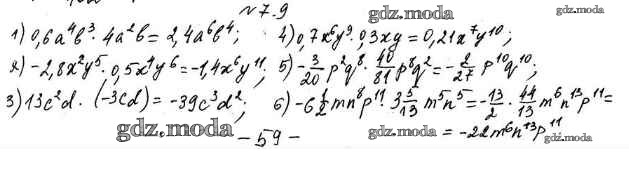 №7.9
gdz.moda
gdz.moda
1) 0,6a⁴b³ · 4a²b = 2,4a⁶b⁴;
4) 0,7x⁶y⁹ · 0,3xy = 0,21x⁷y¹⁰;
2) -2,8x²y⁵ · 0,5x⁴y⁶ = -1,4x⁶y¹¹;
5) -3/20 p²q⁸ · 40/81 p⁸q² = -2/27 p¹⁰q¹⁰;
3) 13c²d · (-3cd) = -39c³d²;
6) -6 1/2 mn⁸p¹¹ · 3 5/13 m⁵n⁵ = -13/2 · 44/13 m⁶n¹³p¹¹ =
= -22m⁶n¹³p¹¹
gdz.moda
gdz.moda
gdz.moda
- 59 -